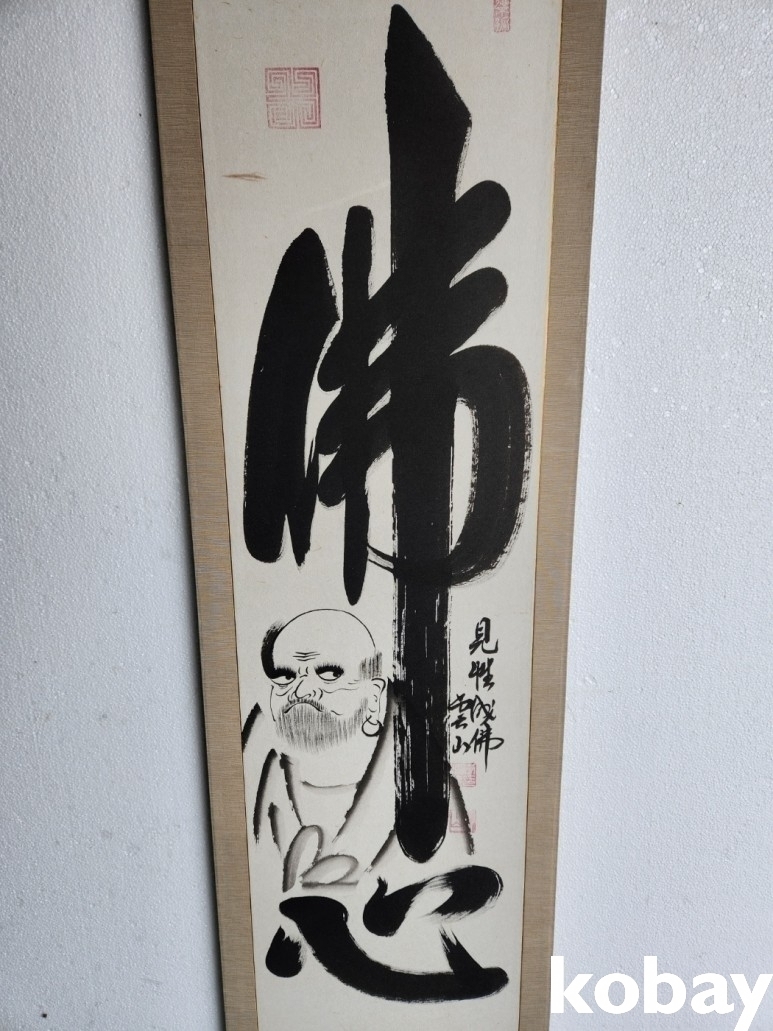 佛心
見性成佛
雲山
kobay